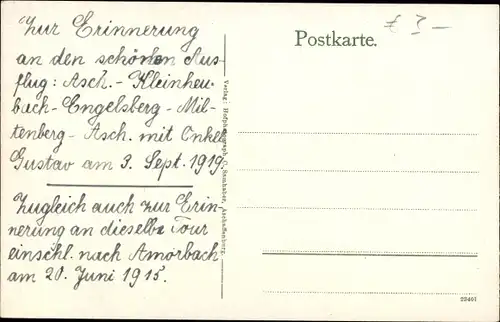 Zur Erinnerung
an den schönen Aus-
flug: Asch. - Kleinheu-
bach - Engelsberg - Mil-
tenberg - Asch. mit Onkel
Gustav am 3. Sept. 1919.
Zugleich auch zur Erin-
nerung an dieselbe Tour
einschl. nach Amorbach
am 20. Juni 1915.
Verlag: Hofphotograph C. Samhaber, Aschaffenburg.
€ 3 -
Postkarte.
22461